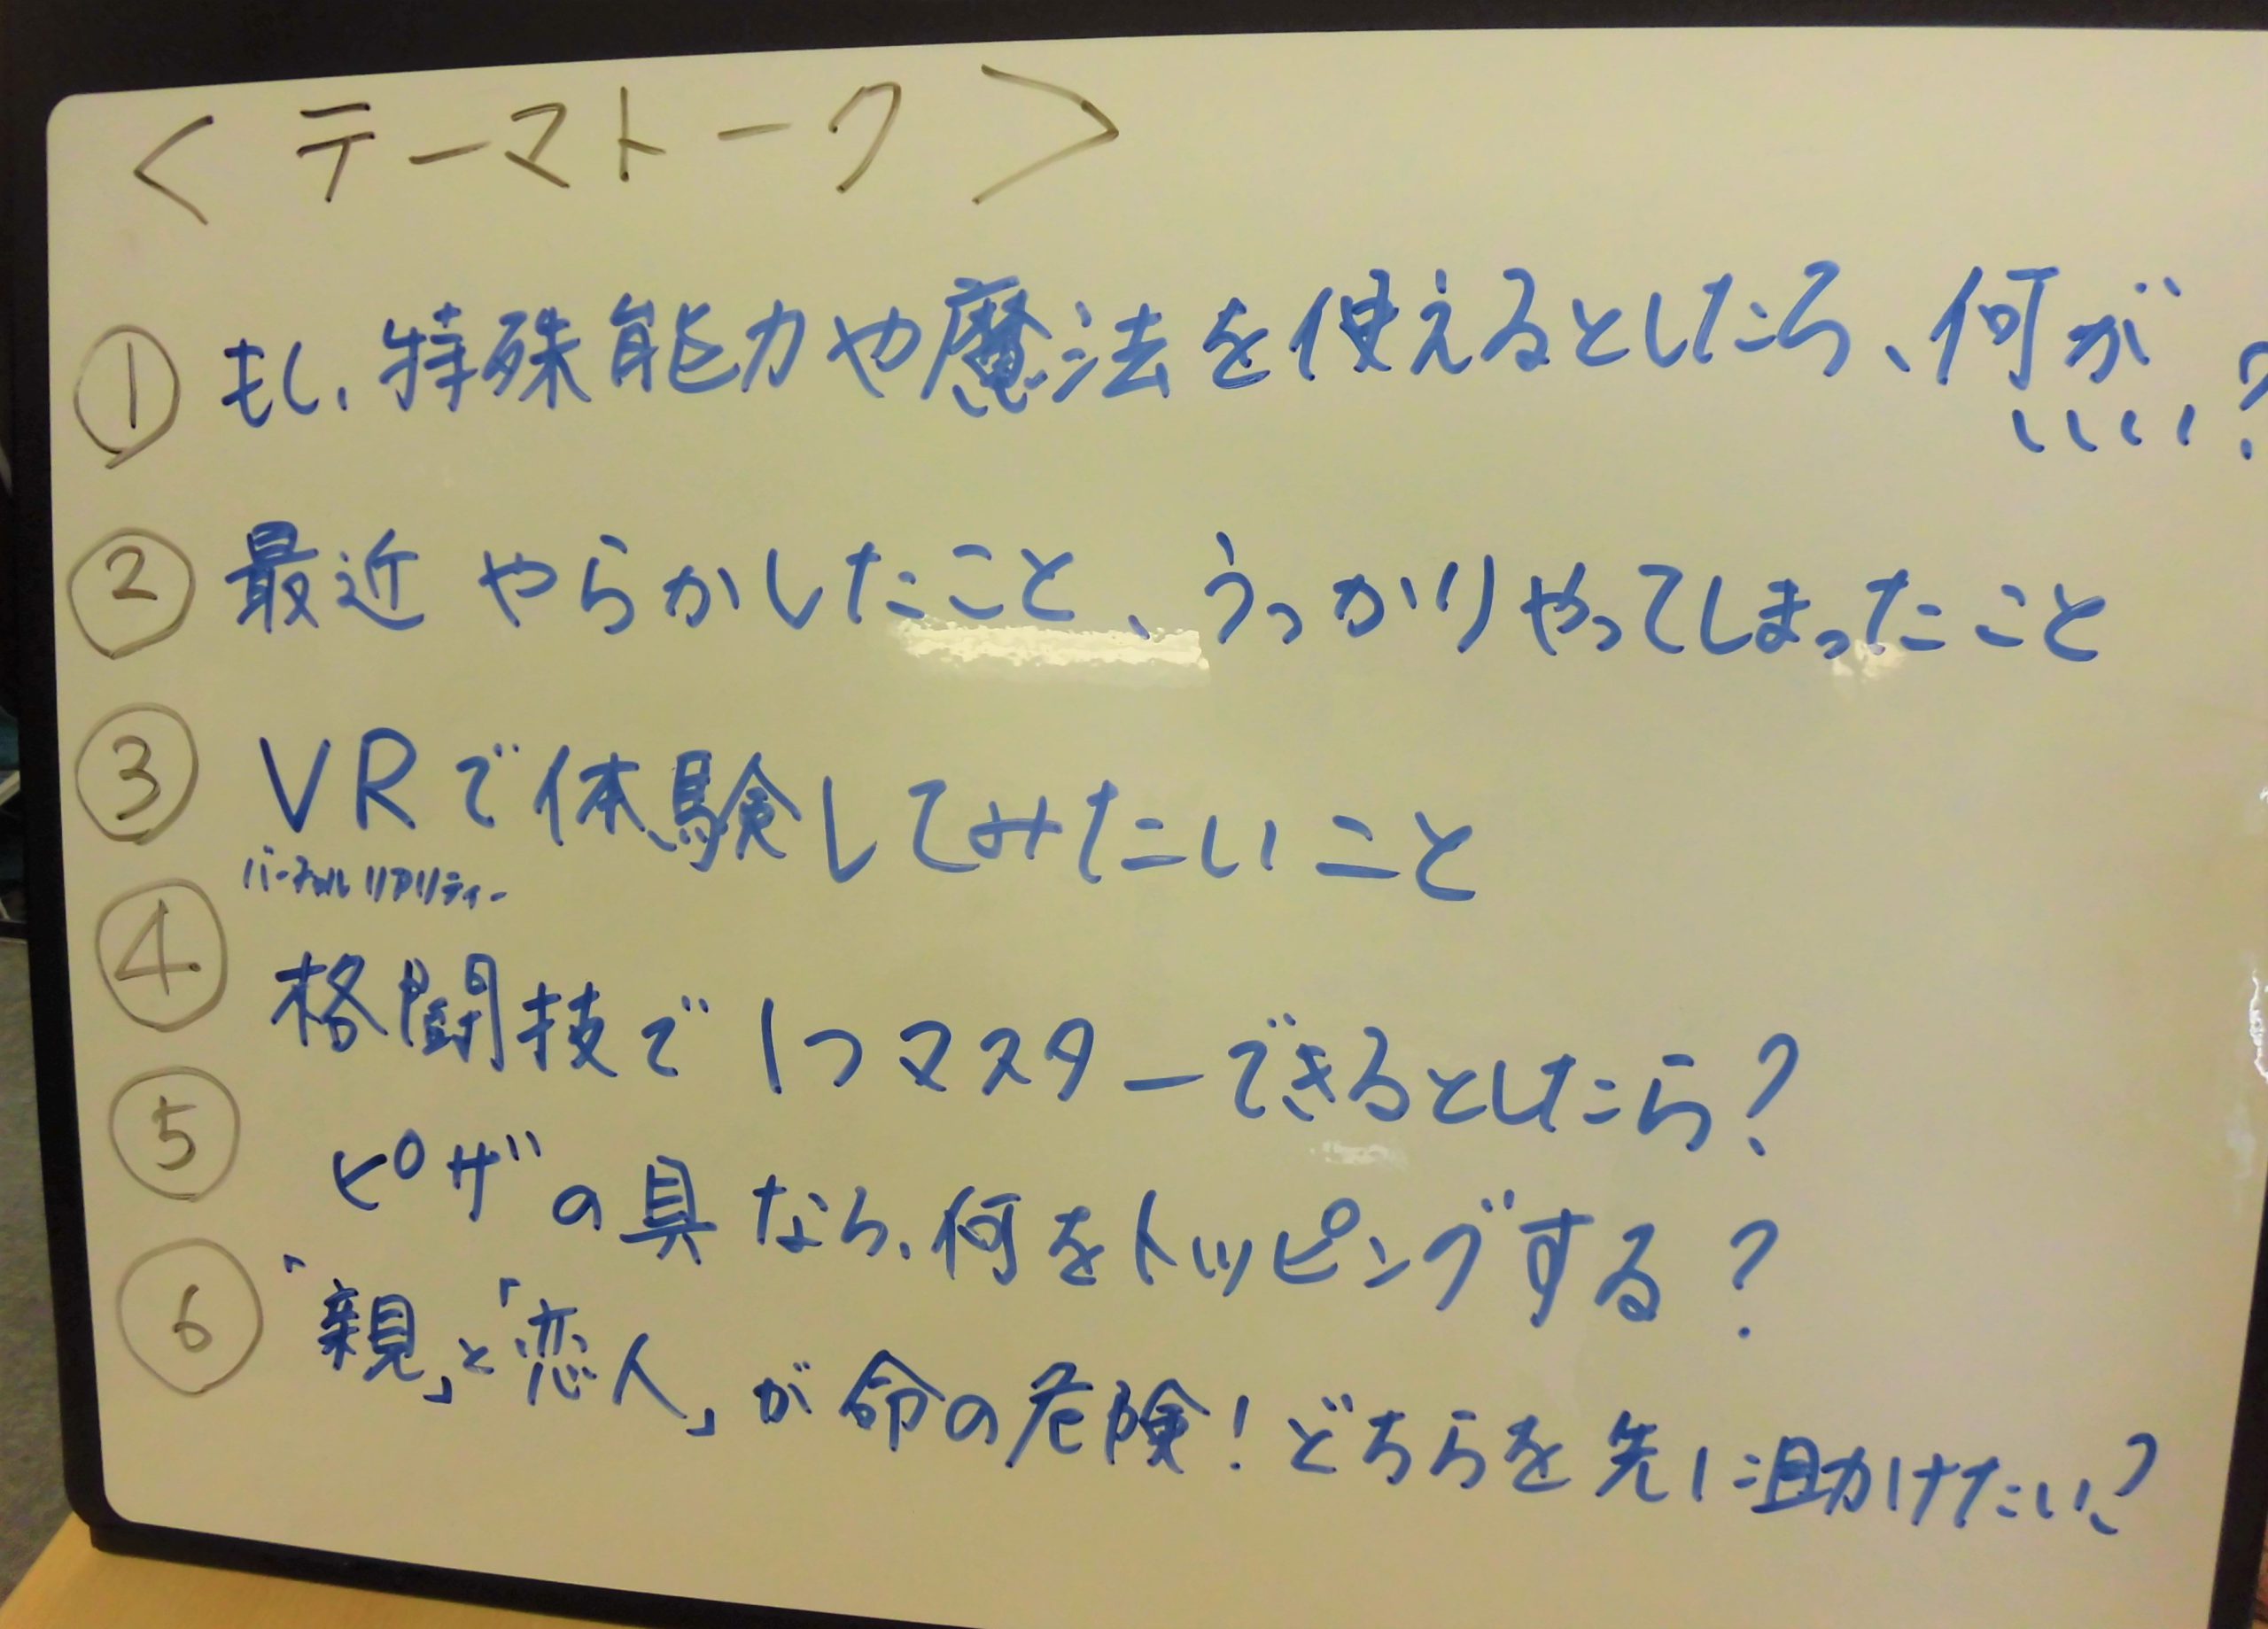 <テーマトーク>
① もし、特殊能力や魔法を使えるとしたら、何が
いいい?
② 最近 やらかしたこと、うっかりやってしまったこと
③ VRで体験してみたいこと
バーチャルリアリティー
④ 格闘技で1つマスターできるとしたら?
⑤ ピザの具なら、何をトッピングする?
⑥ 「親」と「恋人」が命の危険!どちらを先に助けたい?